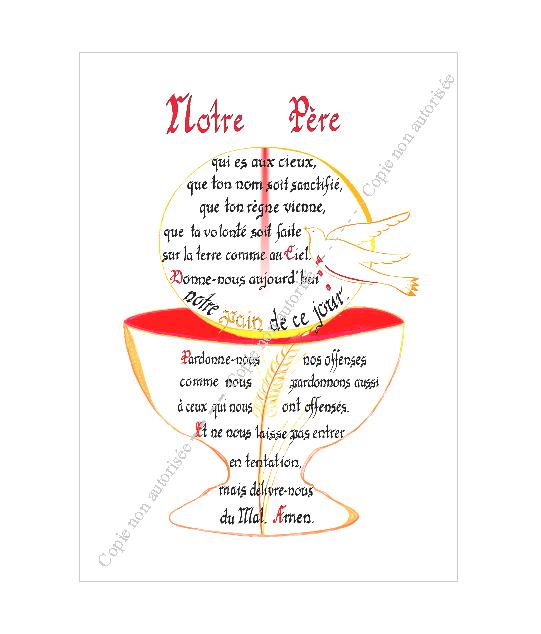 Notre Père
qui es aux cieux,
que ton nom soit sanctifié,
que ton règne vienne,
que ta volonté soit faite
sur la terre comme au Ciel.
Donne-nous aujourd'hui
notre pain de ce jour.
Pardonne-nous nos offenses
comme nous pardonnons aussi
à ceux qui nous ont offensés.
Et ne nous laisse pas entrer
en tentation,
mais délivre-nous
du Mal. Amen.
Copie non autorisée - Copie non autorisée - Copie non autorisée